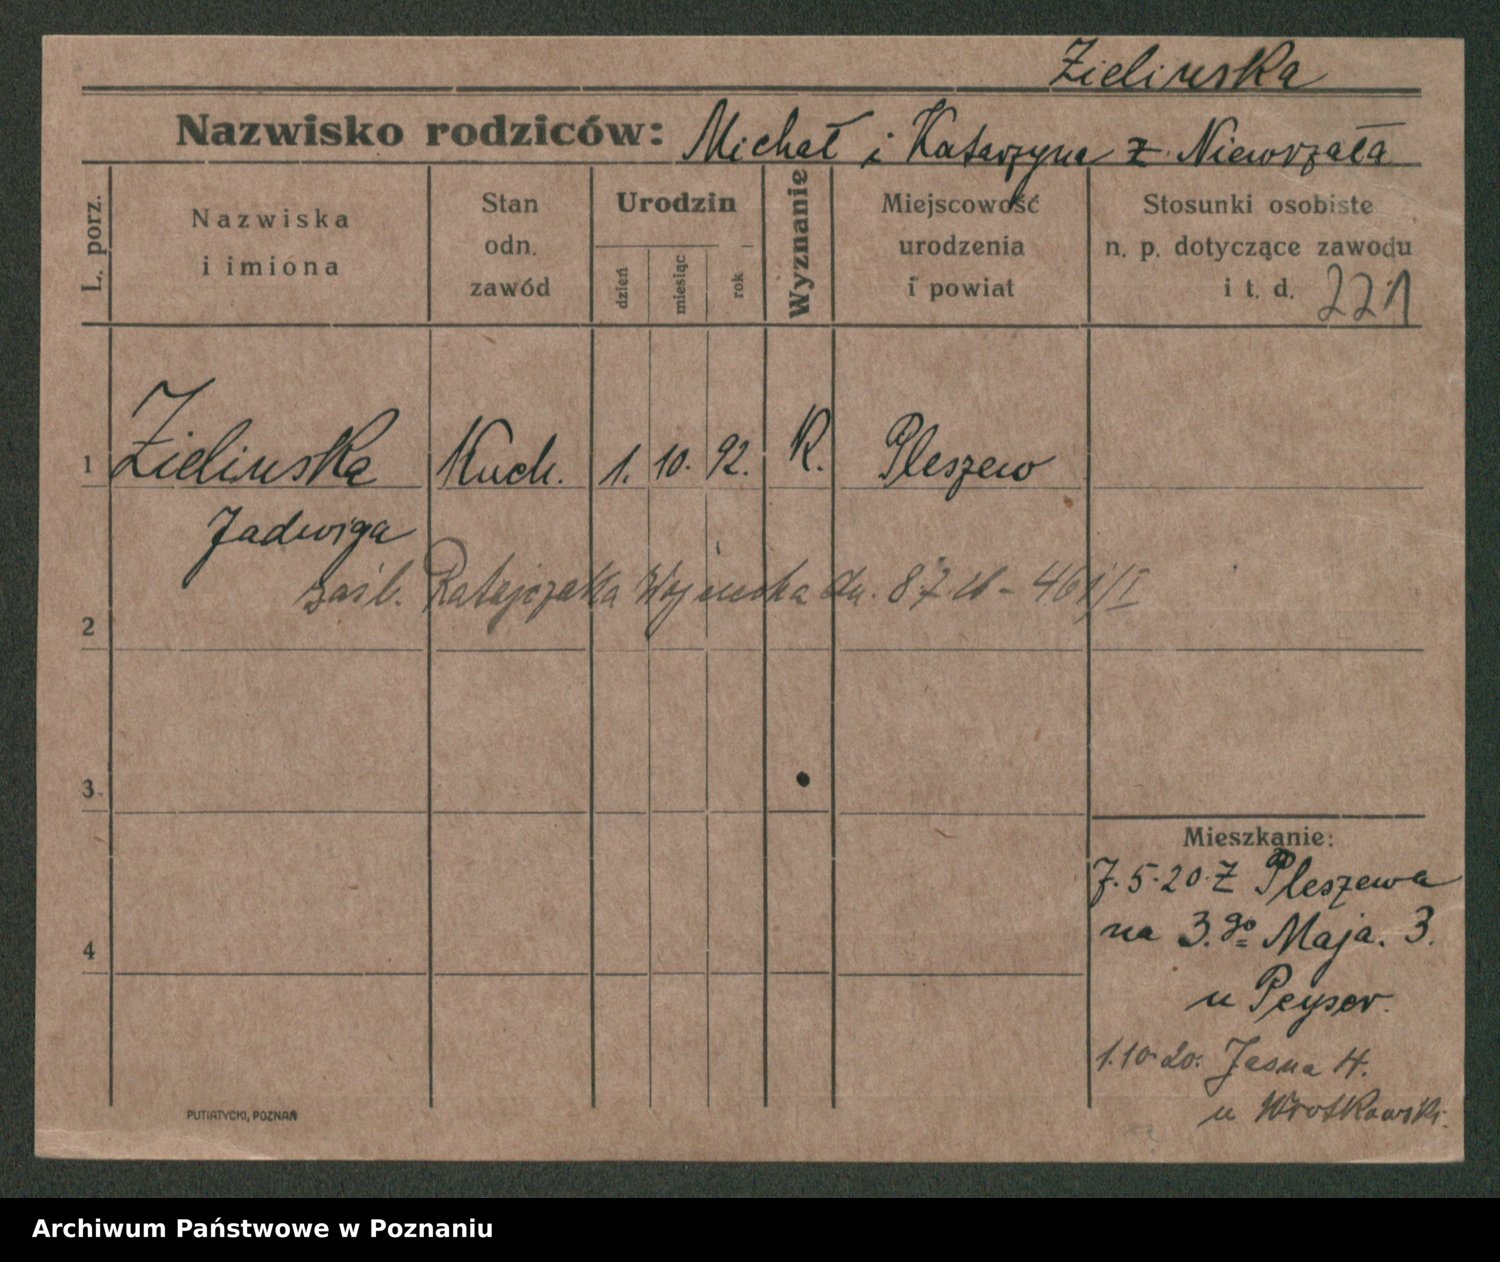 Zielinska
Nazwisko rodziców: Michał i Katarzyna z Niewrzała
L. porz.
Nazwiska
i imiona
Stan
odn.
zawód
Urodzin
dzień
miesiąc
rok
Wyznanie
Miejscowość
urodzenia
i powiat
Stosunki osobiste
n. p. dotyczące zawodu
i t. d. 221
1 Zielinska Kuch. 1. 10. 92. K. Pleszew
Jadwiga
zaśl. Ratajczaka dn. 8.7. - 461/I
2
3
4
Mieszkanie:
7.5.20. Z Pleszewa
na 3.go Maja. 3.
u Peyser.
1.10.20. Jasna 4.
u Wrotkowski.
PUTIATYCKI, POZNAŃ
Archiwum Państwowe w Poznaniu